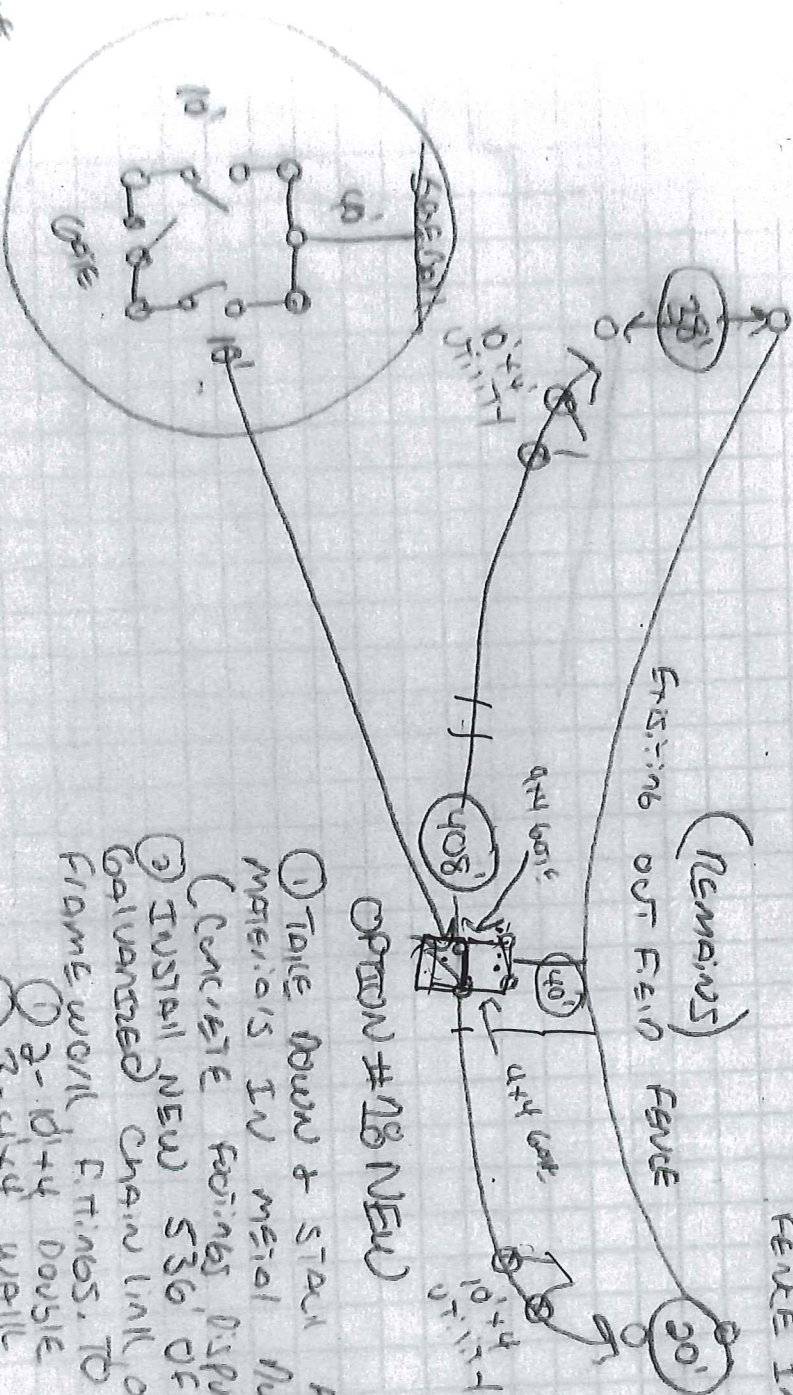 FENCE I
(REMAINS)
EXISTING OUT FIELD FENCE
38'
20'
10'x4'
UTILITY
408'
4x4 GATE
40'
4x4 GATE
10'x4
UTILITY
10'
8'
GATE
18'
OPTION #2B NEW
① TAKE DOWN & STACK
MATERIALS IN METAL
(CONCRETE FOOTINGS
② INSTALL NEW 536' OF
GALVANIZED CHAIN LINK
FRAMEWORK, FITTINGS. TO
① 2-10'x4 DOUBLE